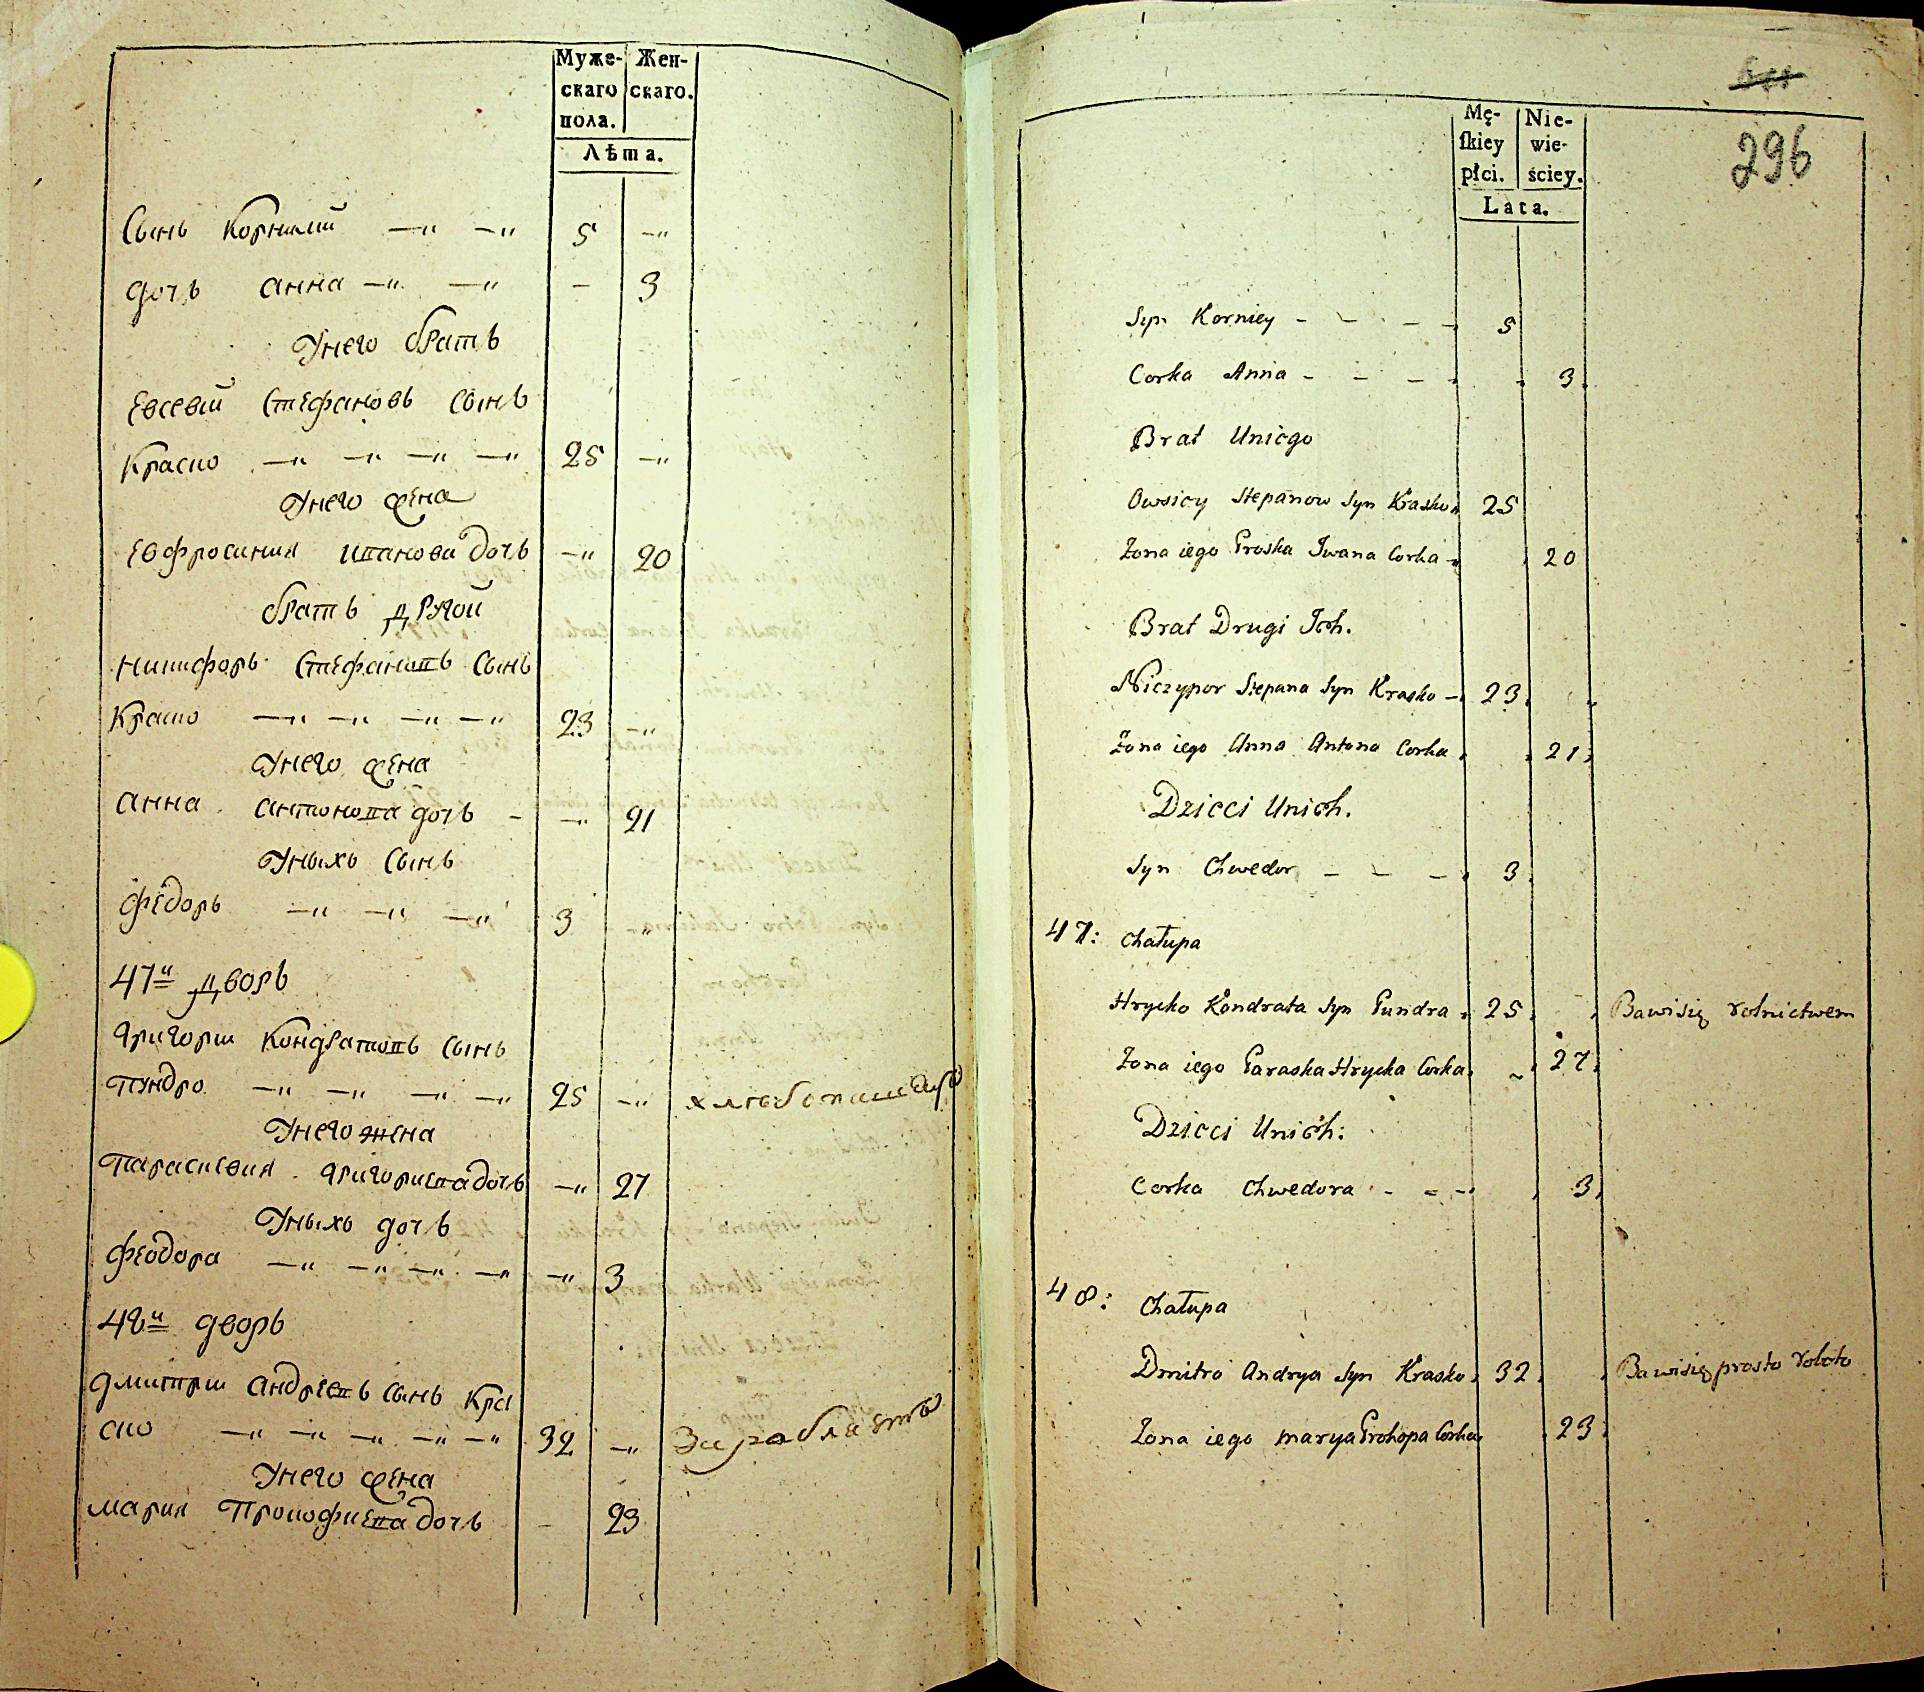 Муже- Жен-
скаго скаго.
пола.
Лѣта.
Сынъ Корнилий —„ —„ 5 —„
дочь анна —„ —„ - 3
Унего братъ
Евсевий Стефановъ сынъ
Краско —„ —„ —„ —„ 25 —„
Унего жена
Евфросиния иванова дочь —„ 20
братъ другой
никифоръ Стефановъ сынъ
Краско —„ —„ —„ —„ 23 —„
Унего жена
анна антонова дочь - —„ 21
Уныхъ сынъ
Федоръ —„ —„ —„ 3 „
47й дворъ
григории Кондратовъ сынъ
Пундро —„ —„ —„ —„ 25 —„ хлебопашецъ
Унего жена
Параскевия григориева дочь —„ 27
Уныхъ дочь
Феодора —„ —„ —„ —„ —„ 3
48й дворъ
дмитрии андреевъ сынъ Кра
ско —„ —„ —„ —„ —„ 32 —„
Унего жена
мария Прокофиева дочь - 23
296
Mę- Nie-
ſkiey wie-
płci. ściey.
Lata.
Syn Korniey - - - - 5
Corka Anna - - - - 3
Brat Uniego
Owsiey Stepanow Syn Krasko 25
Zona iego Proska Iwana Corka - 20
Brat Drugi Ich.
Niczypor Stepana Syn Krasko - 23
Zona iego Anna Antona Corka 21
Dzieci Unich.
Syn Chwedor - - - 3
47: Chałupa
Hrycko Kondrata Syn Pundra 25 Bawisię rolnictwem
Zona iego Paraska Hrycka Corka 27
Dzieci Unich:
Corka Chwedora - - - 3
48: Chałupa
Dmitro Andrya Syn Krasko 32 Bawisię prosto roboto
Zona iego marya Prokopa Corka 23